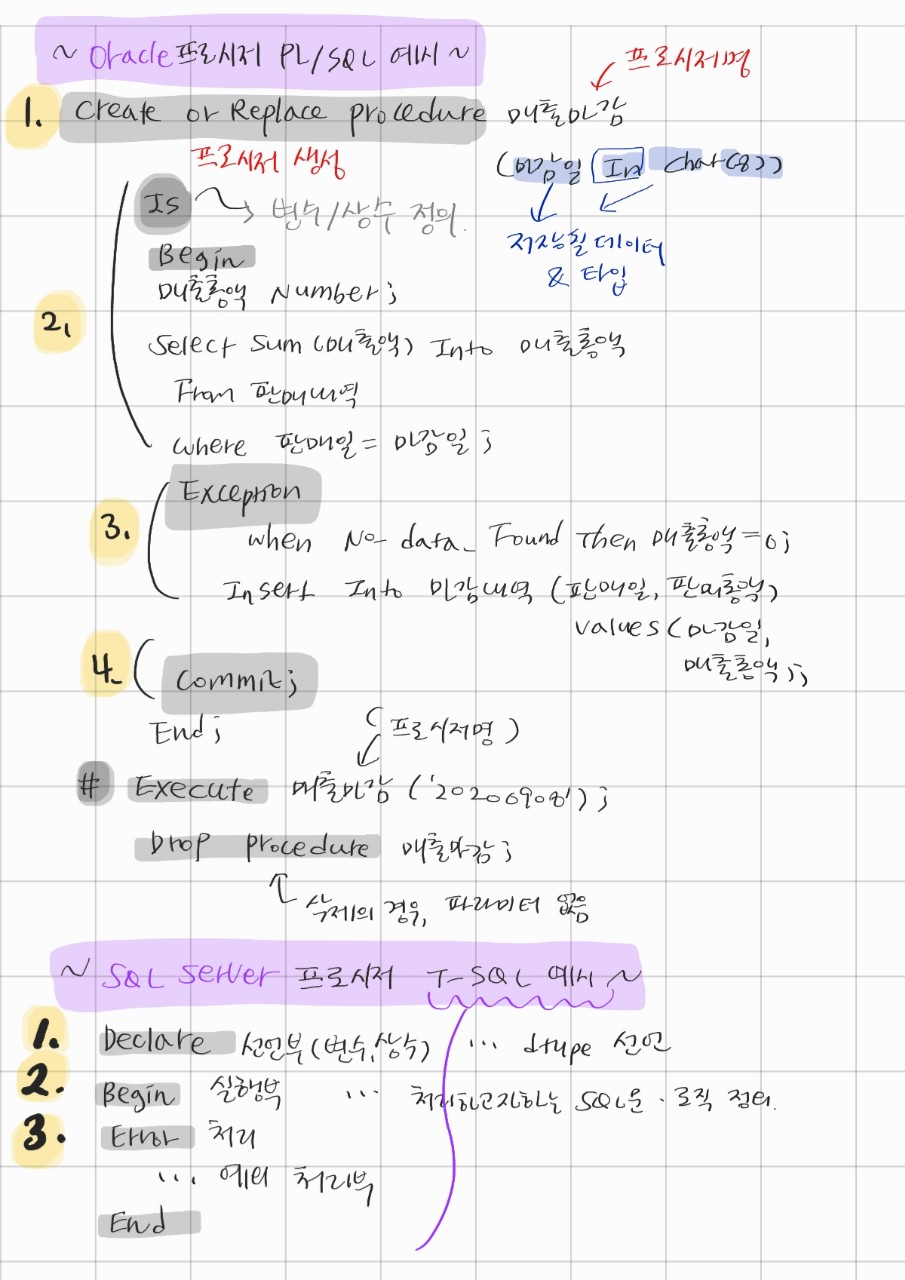 ~ Oracle 프로시저 PL/SQL 예시 ~
프로시저명
1. Create or Replace procedure 매출마감
프로시저 생성
(마감일 In char(8))
Is → 변수/상수 정의.
저장될 데이터
& 타입
Begin
매출총액 Number;
2.
Select Sum(매출액) Into 매출총액
From 판매내역
where 판매일 = 마감일;
Exception
3.
when No_data_Found Then 매출총액=0;
Insert Into 마감내역 (판매일, 판매총액)
values(마감일,
매출총액);
4. Commit;
End;
(프로시저명)
# Execute 매출마감 ('20206908');
Drop procedure 매출마감;
삭제의 경우, 파라미터 없음
~ SQL Server 프로시저 T-SQL 예시 ~
1. Declare 선언부(변수,상수) ... dtype 선언
2. Begin 실행부 ... 처리하고자하는 SQL문·로직 정의.
3. Error 처리
... 에러 처리부
End